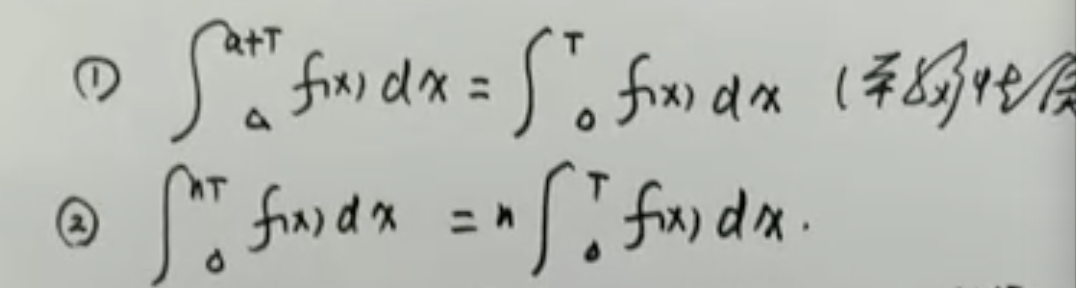 ① ∫_a^{a+T} f(x) dx = ∫_0^T f(x) dx (
② ∫_0^{nT} f(x) dx = n ∫_0^T f(x) dx.